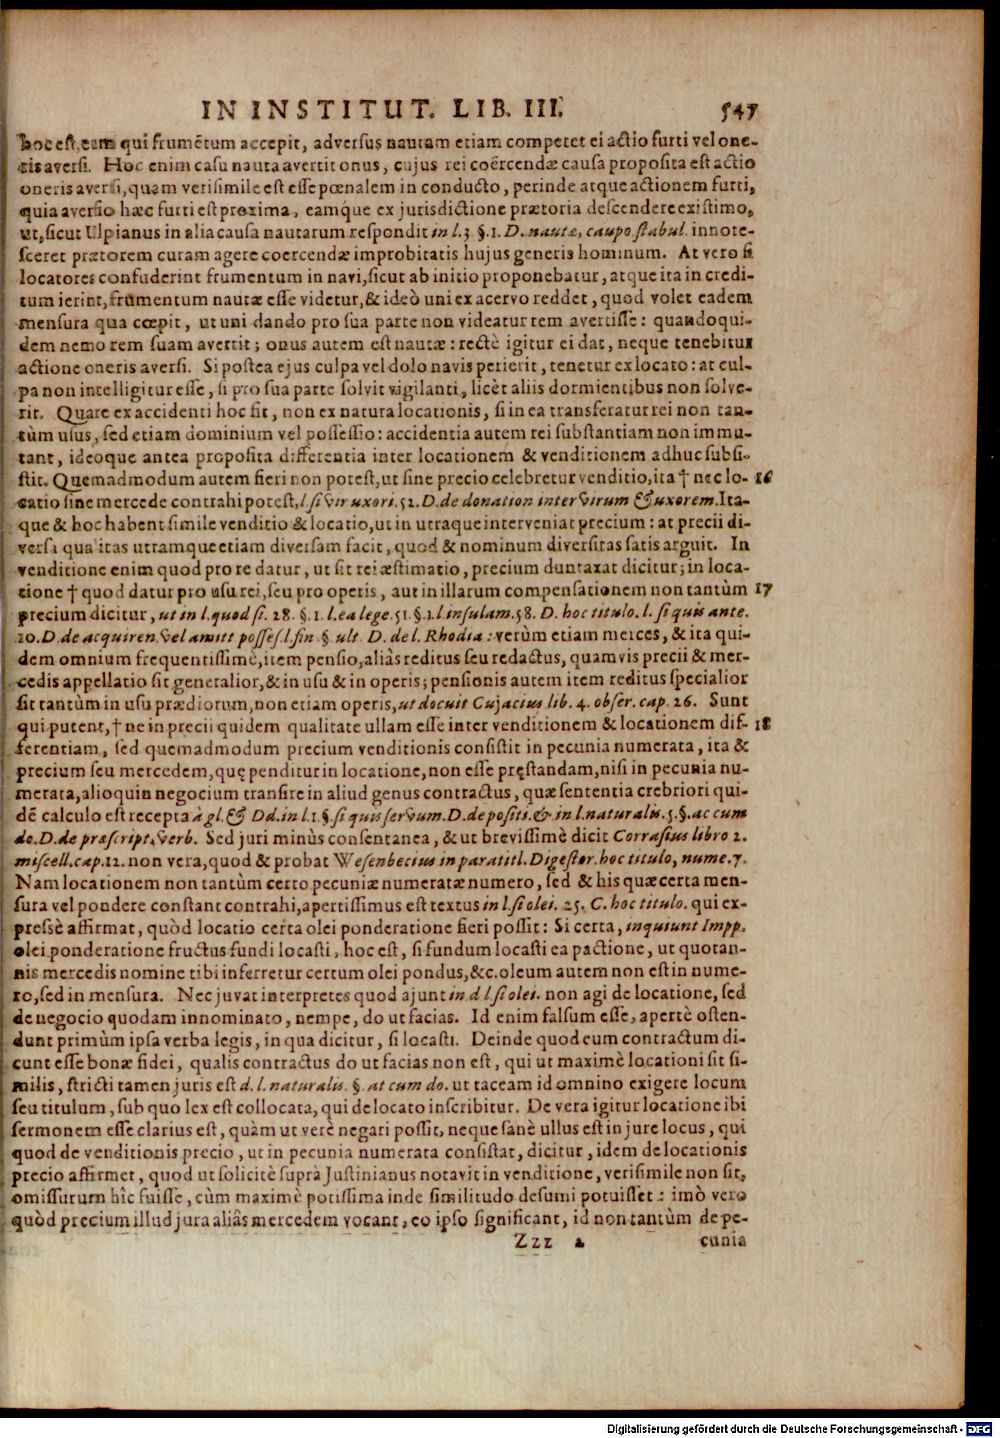 IN INSTITUT. LIB. III. 547
hoc est, eum qui frumẽtum accepit, adversus nautam etiam competet ei actio furti vel one-
ris aversi. Hoc enim casu nauta avertit onus, cujus rei coërcendæ causa proposita est actio
oneris aversi, quam verisimile est esse pœnalem in conducto, perinde atque actionem furti,
quia aversio hæc furti est proxima, eamque ex jurisdictione prætoria descendere existimo,
ut, sicut Ulpianus in alia causa nautarum respondit in l. 3. §. 1. D. nautæ, caupo stabul. innote-
sceret prætorem curam agere coercendæ improbitatis hujus generis hominum. At vero si
locatores confuderint frumentum in navi, sicut ab initio proponebatur, atque ita in credi-
tum ierint, frumentum nautæ esse videtur, & ideò uni ex acervo reddet, quod volet eadem
mensura qua cœpit, ut uni dando pro sua parte non videatur rem avertisse: quandoqui-
dem nemo rem suam avertit; onus autem est nautæ: rectè igitur ei dat, neque tenebitur
actione oneris aversi. Si postea ejus culpa vel dolo navis perierit, tenetur ex locato: at cul-
pa non intelligitur esse, si pro sua parte solvit vigilanti, licèt aliis dormientibus non solve-
rit. Quare ex accidenti hoc fit, non ex natura locationis, si in ea transferatur rei non tan-
tùm usus, sed etiam dominium vel possessio: accidentia autem rei substantiam non immu-
tant, ideoque antea proposita differentia inter locationem & venditionem adhuc subsi-
stit. Quemadmodum autem fieri non potest, ut sine precio celebretur venditio, ita † nec lo- 16
catio sine mercede contrahi potest, l. si vir uxori. 52. D. de donation inter virum & uxorem. Ita-
que & hoc habent simile venditio & locatio, ut in utraque interveniat precium: at precii di-
versa qualitas utramque etiam diversam facit, quod & nominum diversitas satis arguit. In
venditione enim quod pro re datur, ut sit rei æstimatio, precium duntaxat dicitur; in loca-
tione † quod datur pro usu rei, seu pro operis, aut in illarum compensationem non tantùm 17
precium dicitur, ut in l. quod si. 28. §. 1. l. ea lege. 51. §. 1. l. insulam. 58. D. hoc titulo. l. si quis ante.
10. D. de acquiren. vel amitt posses. l. fin. § ult. D. de l. Rhodia: verùm etiam merces, & ita qui-
dem omnium frequentissimè, item pensio, aliàs reditus seu redactus, quamvis precii & mer-
cedis appellatio sit generalior, & in usu & in operis; pensionis autem item reditus specialior
sit tantùm in usu prædiorum, non etiam operis, ut docuit Cujacius lib. 4. obser. cap. 26. Sunt
qui putent, † ne in precii quidem qualitate ullam esse inter venditionem & locationem dif- 18
ferentiam, sed quemadmodum precium venditionis consistit in pecunia numerata, ita &
precium seu mercedem, quę penditur in locatione, non esse pręstandam, nisi in pecunia nu-
merata, alioquin negocium transire in aliud genus contractus, quæ sententia crebriori qui-
dẽ calculo est recepta à gl. & Dd. in l. 1. §. si quis servum. D. depositi. & in l. naturalis. 5. §. ac cum
do. D. de præscript. verb. Sed juri minùs consentanea, & ut brevissimè dicit Corrasius libro 2.
miscell. cap. 12. non vera, quod & probat Wesenbecius in paratitl. Digestor. hoc titulo, nume. 7.
Nam locationem non tantùm certo pecuniæ numeratæ numero, sed & his quæ certa men-
sura vel pondere constant contrahi, apertissimus est textus in l. si olei. 25. C. hoc titulo. qui ex-
pressè affirmat, quòd locatio certa olei ponderatione fieri possit: Si certa, inquiunt Impp.
olei ponderatione fructus fundi locasti, hoc est, si fundum locasti ea pactione, ut quotan-
nis mercedis nomine tibi inferretur certum olei pondus, &c. oleum autem non est in nume-
ro, sed in mensura. Nec juvat interpretes quod ajunt in d l. si olei. non agi de locatione, sed
de negocio quodam innominato, nempe, do ut facias. Id enim falsum esse, apertè osten-
dunt primùm ipsa verba legis, in qua dicitur, si locasti. Deinde quod eum contractum di-
cunt esse bonæ fidei, qualis contractus do ut facias non est, qui ut maximè locationi sit si-
milis, stricti tamen juris est d. l. naturalis. §. at cum do. ut taceam id omnino exigere locum
seu titulum, sub quo lex est collocata, qui de locato inscribitur. De vera igitur locatione ibi
sermonem esse clarius est, quàm ut verè negari possit, neque sanè ullus est in jure locus, qui
quod de venditionis precio, ut in pecunia numerata consistat, dicitur, idem de locationis
precio affirmet, quod ut solicitè suprà Justinianus notavit in venditione, verisimile non sit,
omissurum hîc fuisse, cùm maximè potissima inde similitudo desumi potuisset: imò vero
quòd precium illud jura aliâs mercedem vocant, eo ipso significant, id non tantùm de pe-
Zzz 2 cunia
Digitalisierung gefördert durch die Deutsche Forschungsgemeinschaft - DFG